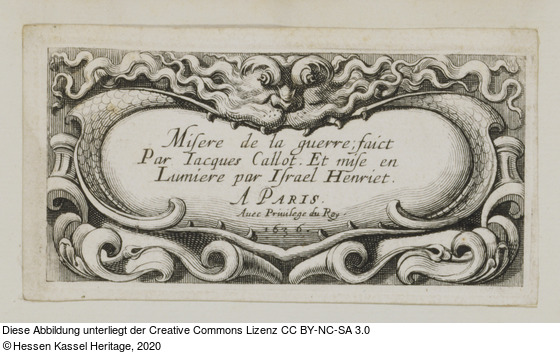 Misere de la guerre; faict
Par Iacques Callot. Et mise en
Lumiere par Israel Henriet.
A PARIS.
Auec Priuilege du Roy
1636.
Diese Abbildung unterliegt der Creative Commons Lizenz CC BY-NC-SA 3.0
©Hessen Kassel Heritage, 2020